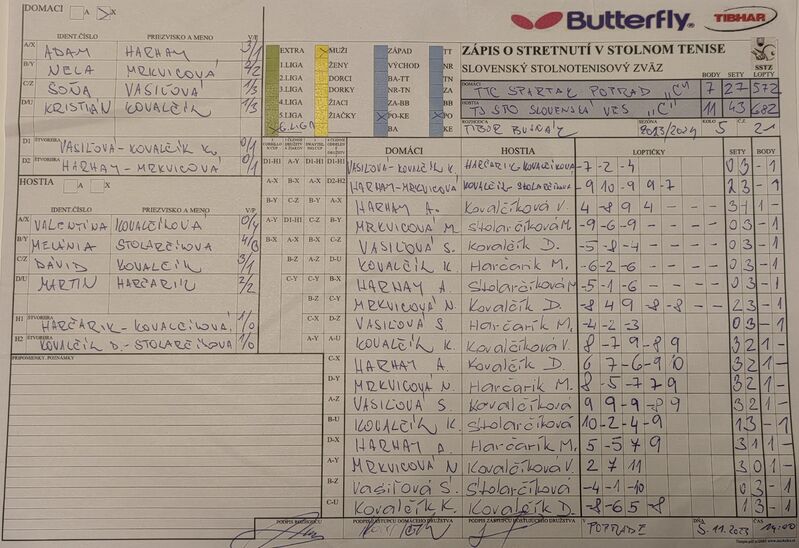 DOMÁCI A X
Butterfly
TIBHAR
IDENT.ČÍSLO PRIEZVISKO A MENO V/P
A/X ADAM HARHAY 3/1
B/Y NELA MRKVICOVÁ 2/2
C/Z SOŇA VASIĽOVÁ 1/3
D/U KRISTIÁN KOVALČÍK 1/3
D1 ŠTVORHRA VASIĽOVÁ-KOVALČÍK K. 0/1
D2 HARHAY-MRKVICOVÁ 0/1
HOSTIA A X
IDENT.ČÍSLO PRIEZVISKO A MENO V/P
A/X VALENTINA KOVALČÍKOVÁ 0/4
B/Y MELÁNIA STOLARČÍKOVÁ
C/Z DÁVID KOVALČÍK 3/1
D/U MARTIN HARČARIK 2/2
H1 ŠTVORHRA HARČARIK-KOVALČÍKOVÁ 1/0
H2 KOVALČÍK D.-STOLARČÍKOVÁ 1/0
PRIPOMIENKY, POZNÁMKY
EXTRA MUŽI ZÁPAD TT
1.LIGA ŽENY VÝCHOD NR
2.LIGA DORCI BA-TT TN
3.LIGA DORKY NR-TN ZA
4.LIGA ŽIACI ZA-BB BB
5.LIGA ŽIAČKY PO-KE PO
6.LIGA BA KE
ZÁPIS O STRETNUTÍ V STOLNOM TENISE
SLOVENSKÝ STOLNOTENISOVÝ ZVÄZ
SSTZ
BODY SETY LOPTY
DOMÁCI TTC SPARTAK POPRAD "C" 7 27 572
HOSTIA TJ STO SLOVENSKÁ VES "C" 11 43 682
ROZHODCA TIBOR SEZÓNA 2023/2024 KOLO 5 Č.Z. 21
DOMÁCI HOSTIA LOPTIČKY SETY BODY
D1-H1 A-Y D1-H1 D1-H1 VASIĽOVÁ-KOVALČÍK K. HARČARIK-KOVALČÍKOVÁ -7 -2 -4 0 3 - 1
A-X B-X A-X D2-H2 HARHAY-MRKVICOVÁ KOVALČÍK-STOLARČÍKOVÁ -9 10 -9 9 -7 2 3 - 1
B-Y C-Z B-Y A-X HARHAY A. Kovalčíková V. 4 -8 9 4 3 1 1 -
A-Y D1-H1 C-Z B-Y MRKVICOVÁ N. Stolarčíková M. -9 -6 -9 0 3 - 1
B-X A-X B-X C-Z VASIĽOVÁ S. Kovalčík D. 0 3 - 1
D-U KOVALČÍK K. Harčarik M. -6 -2 -6 0 3 - 1
HARHAY A. Stolarčíková M -5 -1 -6 0 3 - 1
MRKVICOVÁ N. Kovalčík D. -8 4 9 -8 -8 2 3 - 1
VASIĽOVÁ S Harčarik M. -4 -2 -3 0 3 - 1
KOVALČÍK K. Kovalčíková V. 8 -7 9 -8 9 3 2 1 -
C-X HARHAY A. Kovalčík D. 6 7 -6 -9 10 3 2 1 -
D-Y MRKVICOVÁ N. Harčarik M. 8 -5 -7 7 9 3 2 1 -
A-Z VASIĽOVÁ S. Kovalčíková 9 9 -9 -8 9 3 2 1 -
B-U KOVALČÍK K. Stolarčíková 10 -2 -4 -9 1 3 - 1
D-X HARHAY A. Harčarik M. 5 -5 7 9 3 1 1 -
A-Y MRKVICOVÁ N Kovalčíková V. 2 7 11 3 0 1 -
B-Z VASIĽOVÁ S. Stolarčíková -4 -1 -10 0 3 - 1
C-U Kovalčík K. Kovalčík D. -8 -6 5 -8 1 3 - 1
PODPIS ROZHODCU PODPIS ZÁSTUPCU DOMÁCEHO DRUŽSTVA PODPIS ZÁSTUPCU HOSŤUJÚCEHO DRUŽSTVA V POPRADE DŇA 5.11.2023 ČAS 14:00